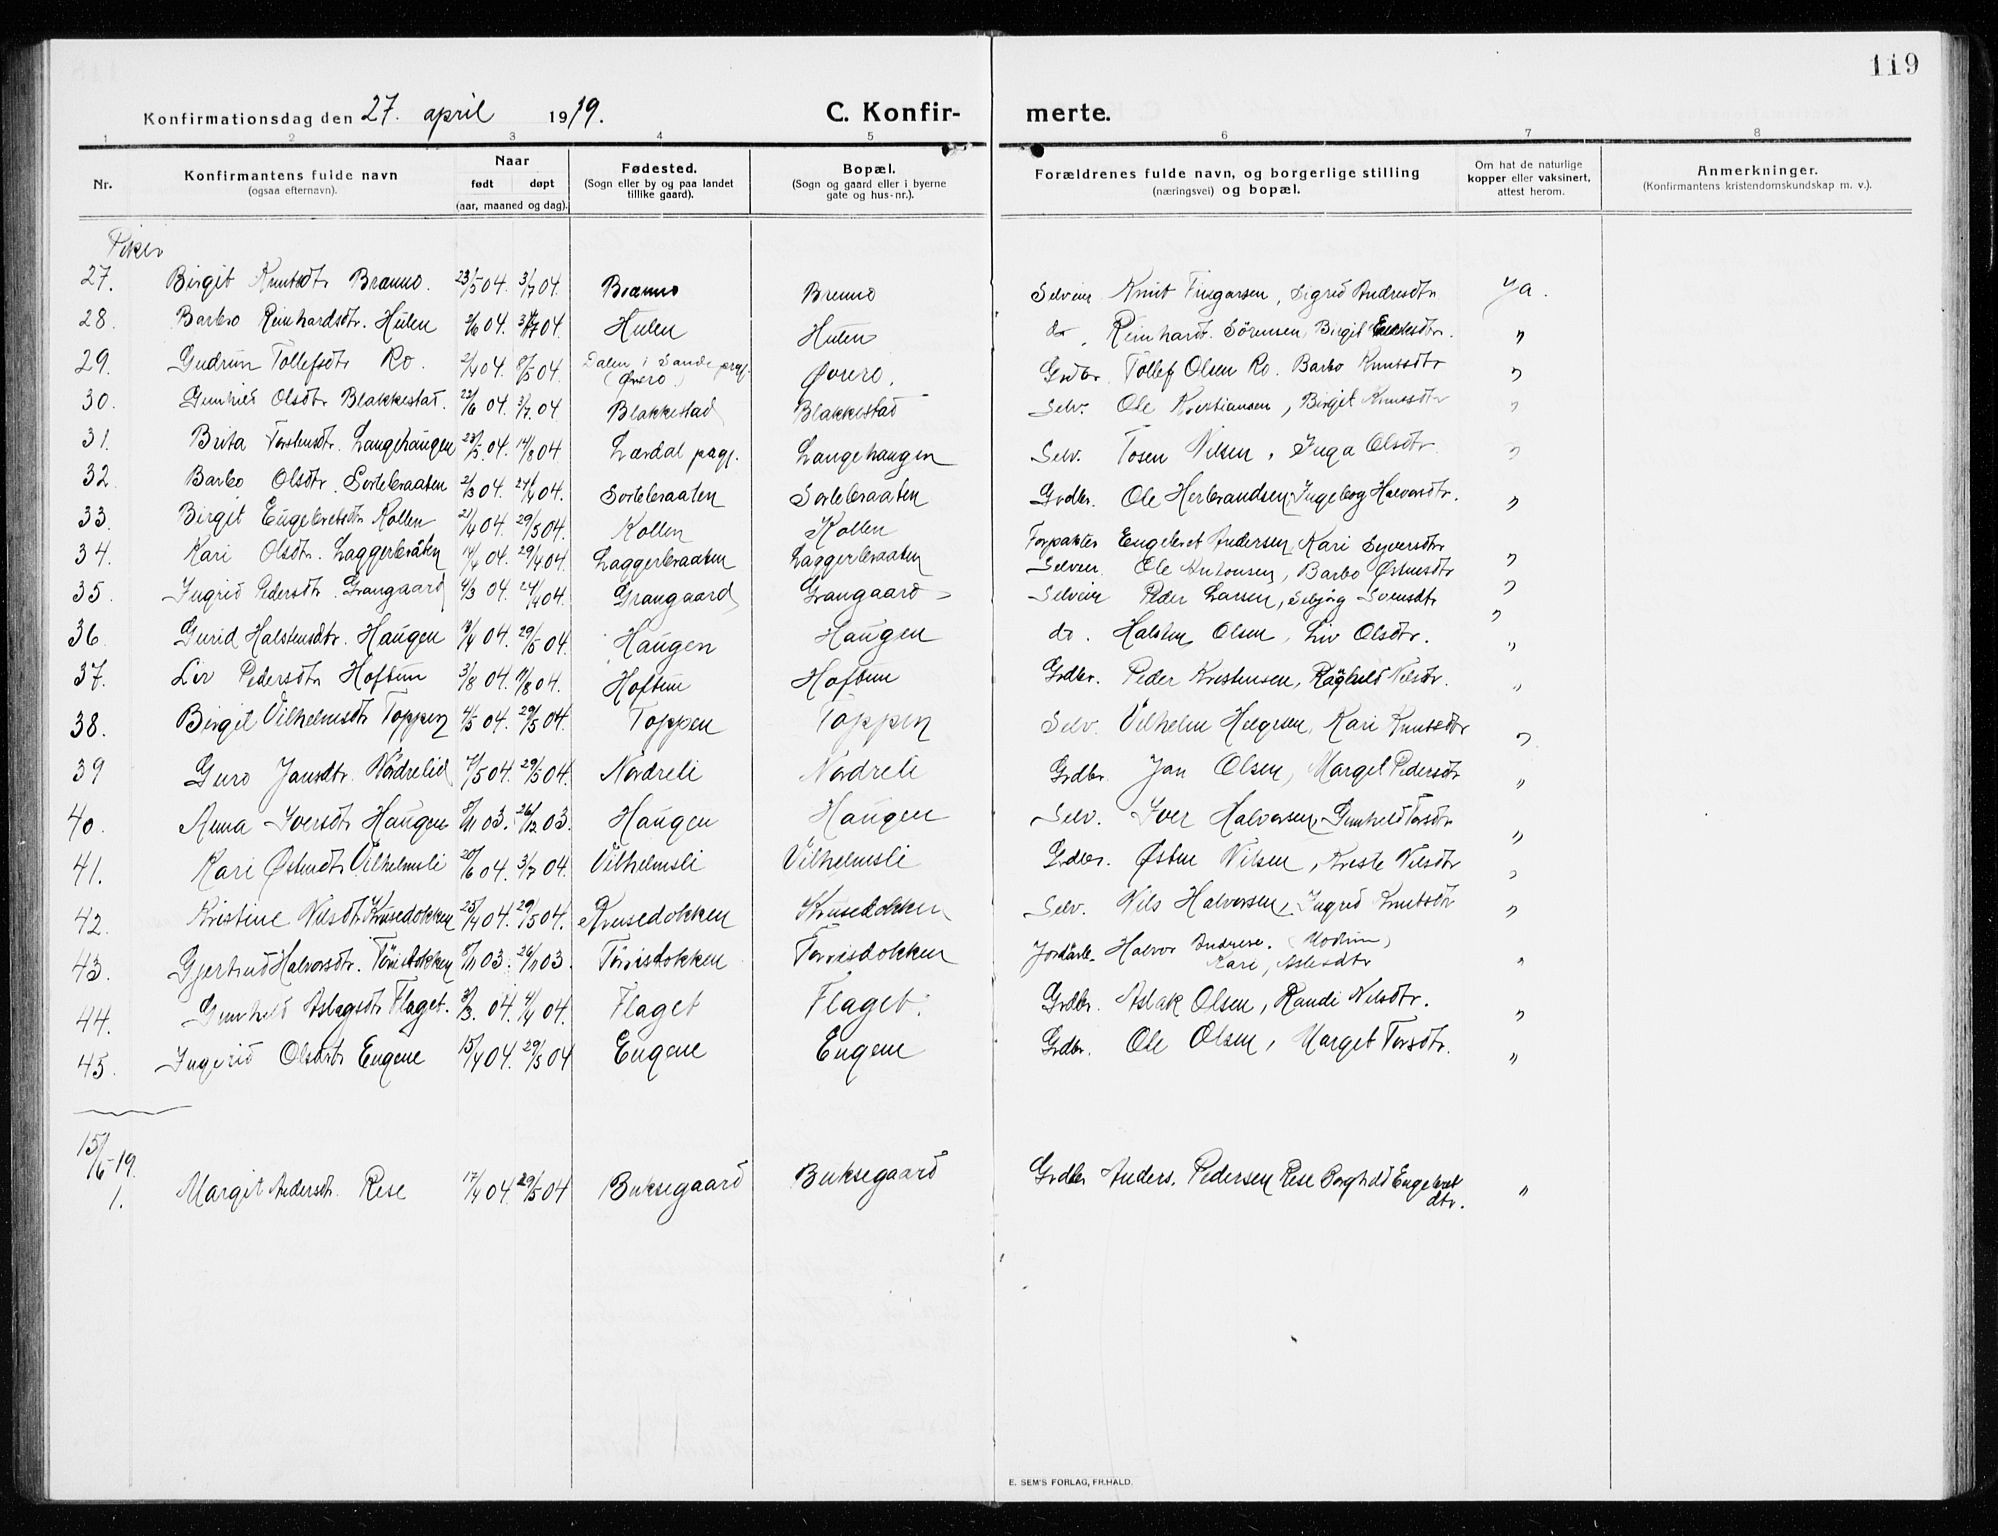 119
Konfirmationsdag den 27. april 1919. C. Konfirmerte.
1 2 3 4 5 6 7 8
Nr. Konfirmantens fulde navn (ogsaa efternavn). Naar født døpt (aar, maaned og dag). Fødested. (Sogn eller by og paa landet tillike gaard). Bopæl. (Sogn og gaard eller i byerne gate og hus-nr.). Forældrenes fulde navn, og borgerlige stilling (næringsvei) og bopæl. Om hat de naturlige kopper eller vaksinert, attest herom. Anmerkninger. (Konfirmantens kristendomskundskap m. v.).
Piker
27. Birgit Knutsdtr Brenno. 23/5 04. 3/7 04. Brenno Brenno Selveier Knut Fingarsen, Sigrid Andresdtr Ja.
28. Barbo Reinhardsdtr. Hulen 2/6 04. 04. Hulen Hulen do. Reinhardt Sørensen, Birgit "
29. Gudrun Tollefsdtr Ro. 2/4 04. 8/5 04. Dalen i Sande prgj. (Øvero) Øvero. Grdbr. Tollef Olsen Ro. Barbo Knutsdtr "
30. Gunhild Olsdtr Blakkestad. 22/6 04. 3/7 04 Blakkestad Blakkestad Selv. Ole Kristiansen, Birgit Knutsdtr "
31. Brita Torstensdtr. Langehaugen 23/5 04. 14/8 04 Lærdal prgj. Langehaugen Selv. Tosen Nilsen, Inga Olsdtr "
32 Barbo Olsdtr. Sortebraaten 2/3 04. 24/4 04. Sortebraaten Sortebraaten Grdbr. Ole Herbrandsen, Ingeborg Halvorsdtr. "
33. Birgit Engebretsdtr Kollen 21/4 04. 29/5 04. Kollen Kollen Forpakter Engebret Andersen, Kari Syversdtr "
34. Kari Olsdtr. Laggerbråten 14/4 04. 29/4 04. Laggerbraaten Laggerbraaten Selveier. Ole Antonsen, Barbo Østensdtr "
35. Ingrid Pedersdtr. Grangaard 4/3 04. 24/4 04. Grangaard Grangaard Selveier Peder Larsen, Sebjørg Svensdtr "
36. Gurid Halstensdtr. Haugen 18/4 04. 29/5 04. Haugen Haugen do. Halsten Olsen, Liv Olsdtr. "
37. Liv Pedersdtr Hoftun 3/8 04. 04. Hoftun Hoftun Grdbr. Peder Kristensen, Raghild Nilsdtr. "
38. Birgit Vilhelmsdtr Toppen 4/5 04. 29/5 04. Toppen Toppen Selv. Vilhelm Helgesen, Kari Knutsdtr "
39 Guro Jansdtr. Nordrelid 7/5 04. 29/5 04. Nordreli Nordreli Grdbr. Jan Olsen, Marget Pedersdtr "
40. Anna Iversdtr Haugen 8/11 03. 26/12 03. Haugen Haugen Selv. Iver Halvorsen, Gunhild Torsdtr "
41. Kari Østensdtr Vilhelmsli 20/6 04. 3/7 04. Vilhelmsli Vilhelmsli Grdbr. Østen Nilsen, Kirste Nilsdtr "
42. Kristine Nilsdtr Krusedokken 25/4 04. 29/5 04. Krusedokken Krusedokken Selv. Nils Halvorsen, Ingrid Knutsdtr "
43. Gjertrud Halvorsdtr. Torrisdokken 8/11 03. 26/11 03. Torrisdokken Torrisdokken Jordarb. Halvor Andres. (Modum) Kari Aslesdtr "
44. Gunhild Aslagsdtr Flaget. 3/3. 04. 4/4 04. Flaget Flaget. Grdbr. Aslak Olsen, Randi Nilsdtr. "
45. Ingerid Olsdtr Engene 15/4 04. 29/5 04 Engene Engene Grdbr. Ole Olsen, Marget Torsdtr. "
15/6-19.
1. Margit Andersdtr. Rese 17/4 04. 29/5 04 Buksegaard Buksegaard Grdbr Anders. Pedersen Rese Borghild Engebretdtr. "
E. SEM'S FORLAG, FR.HALD.